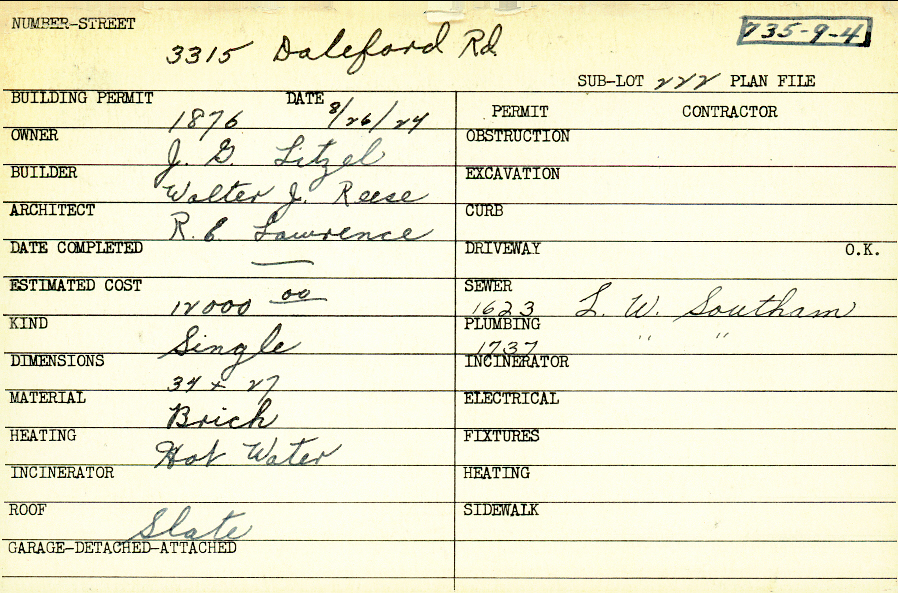 NUMBER-STREET
3315 Daleford Rd
735-9-4
SUB-LOT 222 PLAN FILE
BUILDING PERMIT 1876 DATE 8/26/24
PERMIT CONTRACTOR
OWNER J. G. Litzel
OBSTRUCTION
BUILDER Walter J. Reese
EXCAVATION
ARCHITECT R. C. Lawrence
CURB
DATE COMPLETED —
DRIVEWAY O.K.
ESTIMATED COST 12000 00
SEWER 1623 L. W. Southam
KIND Single
PLUMBING 1737 " "
DIMENSIONS 34 x 27
INCINERATOR
MATERIAL Brick
ELECTRICAL
HEATING Hot Water
FIXTURES
INCINERATOR
HEATING
ROOF Slate
SIDEWALK
GARAGE-DETACHED-ATTACHED